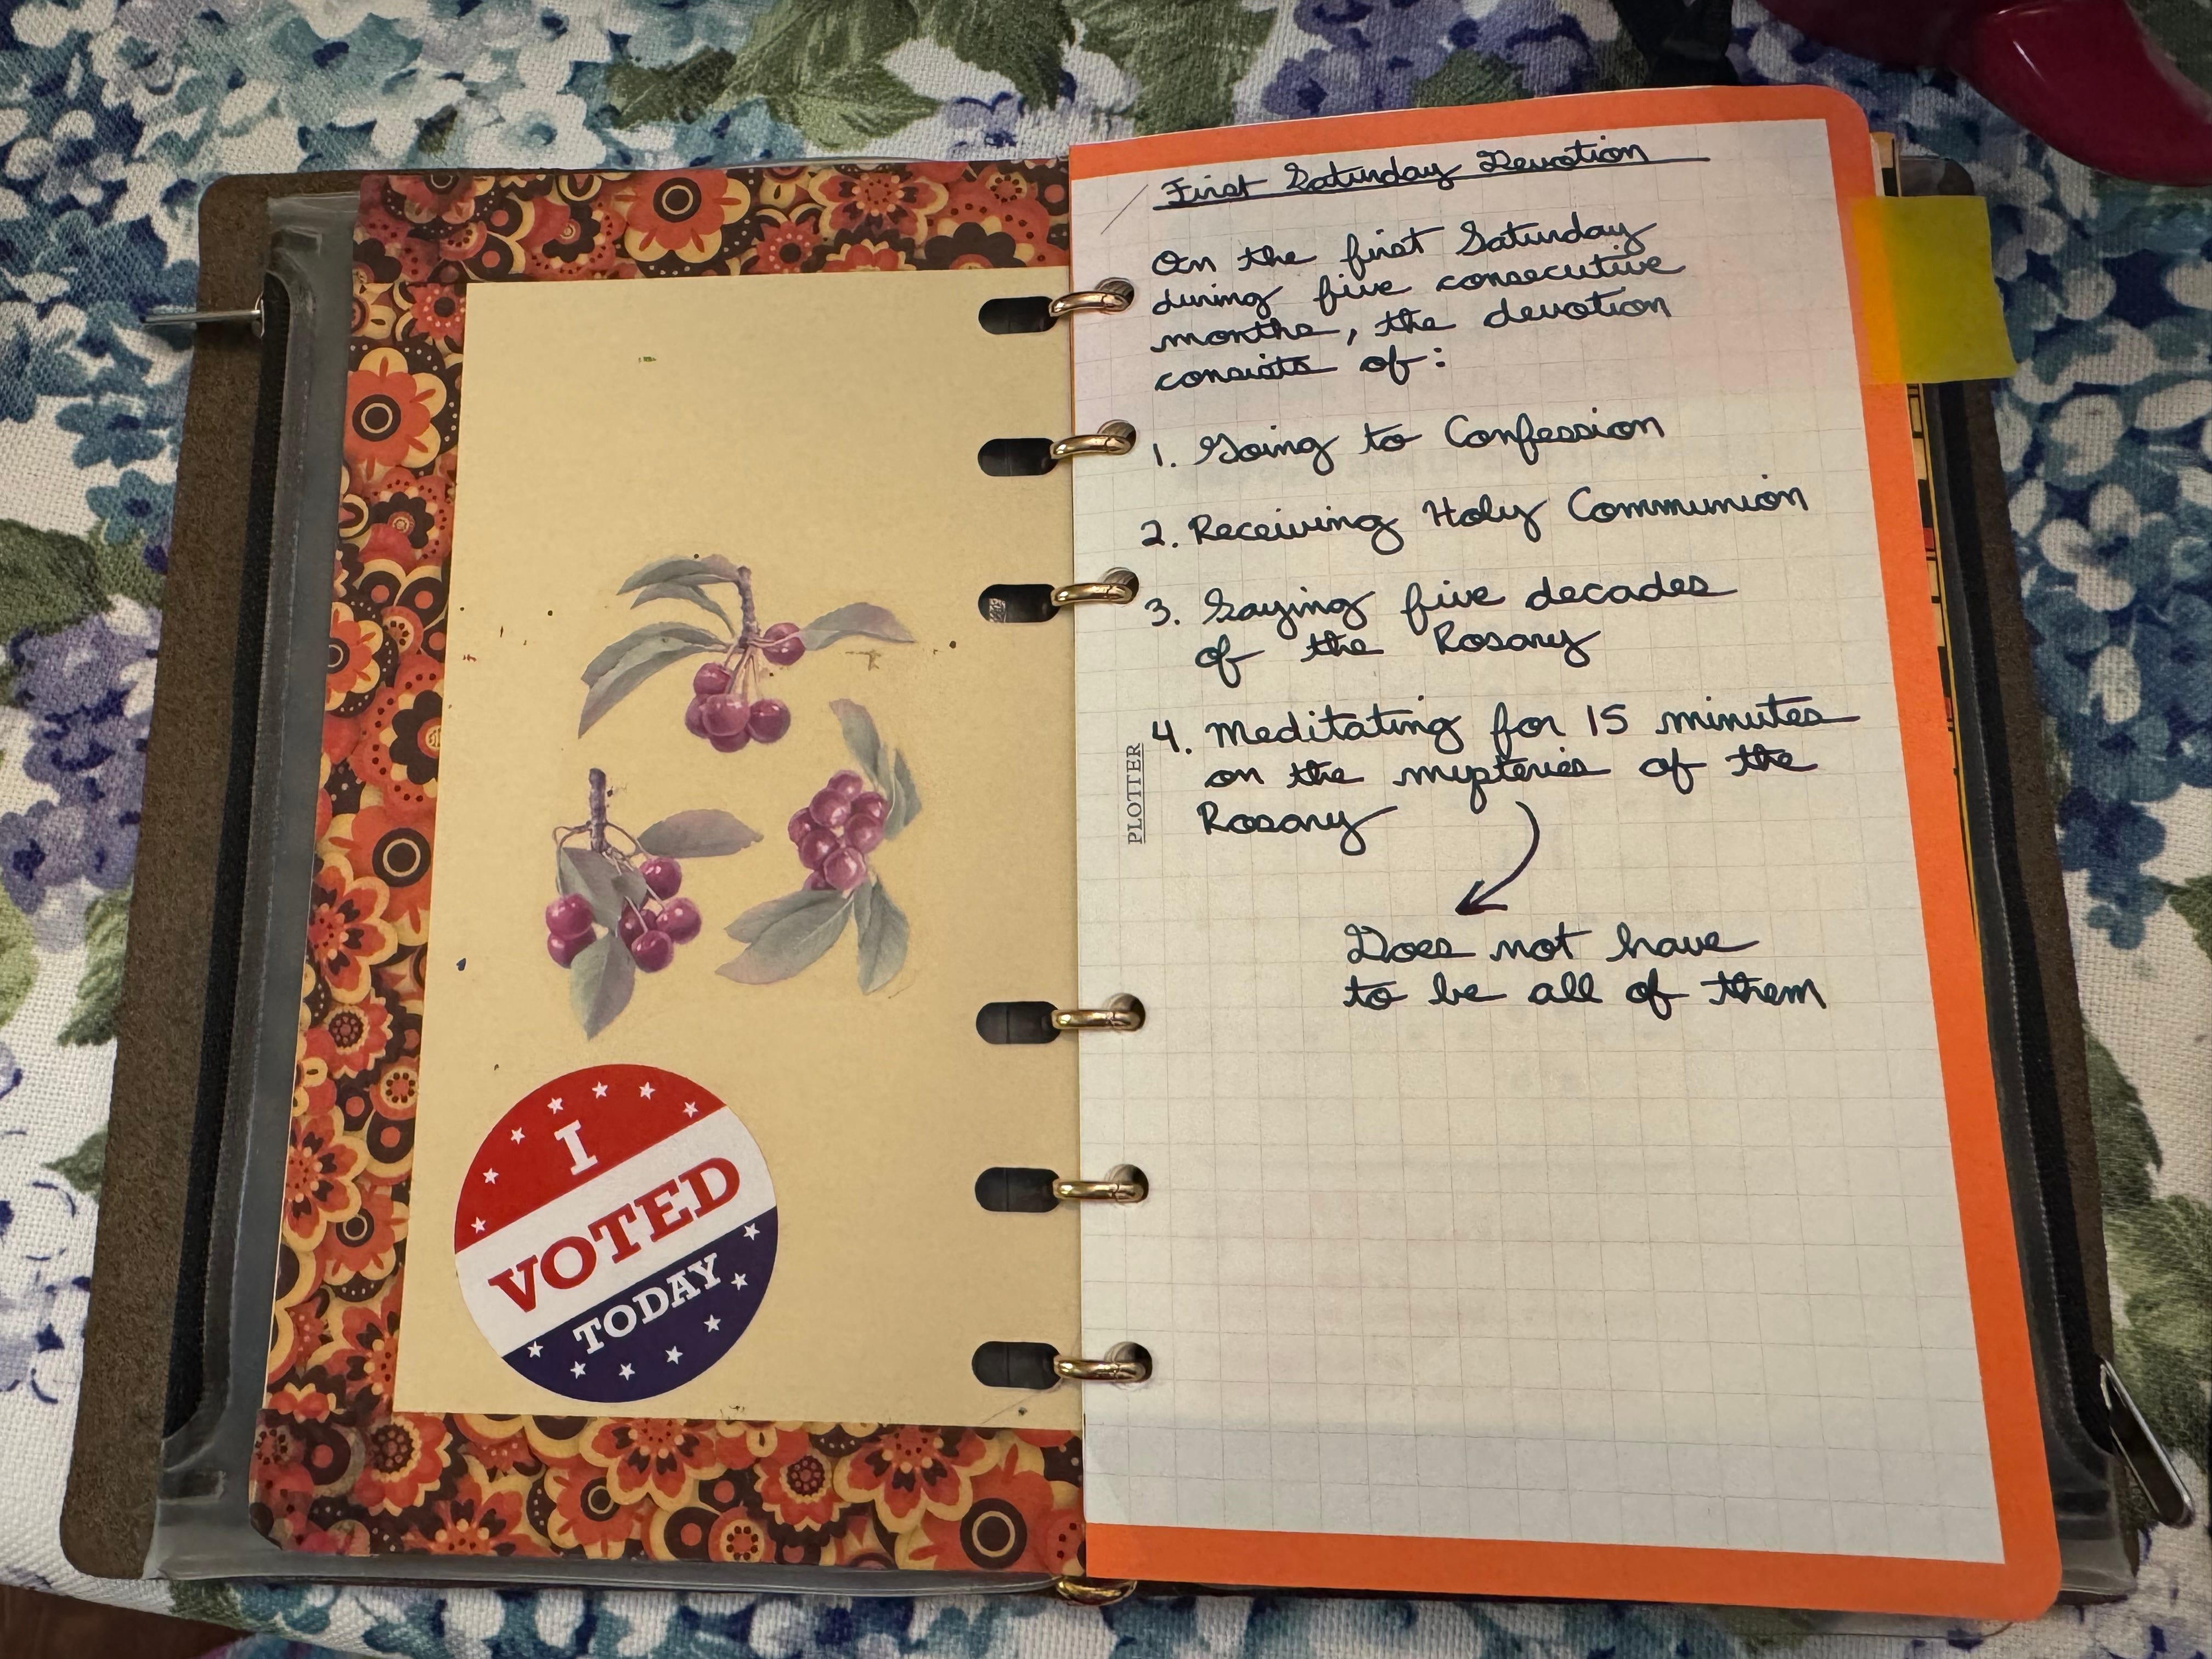 I
VOTED
TODAY
First Saturday Devotion
On the first Saturday
during five consecutive
months, the devotion
consists of:
1. Going to Confession
2. Receiving Holy Communion
3. Saying five decades
of the Rosary
4. Meditating for 15 minutes
on the mysteries of the
Rosary
Does not have
to be all of them
PLOTTER